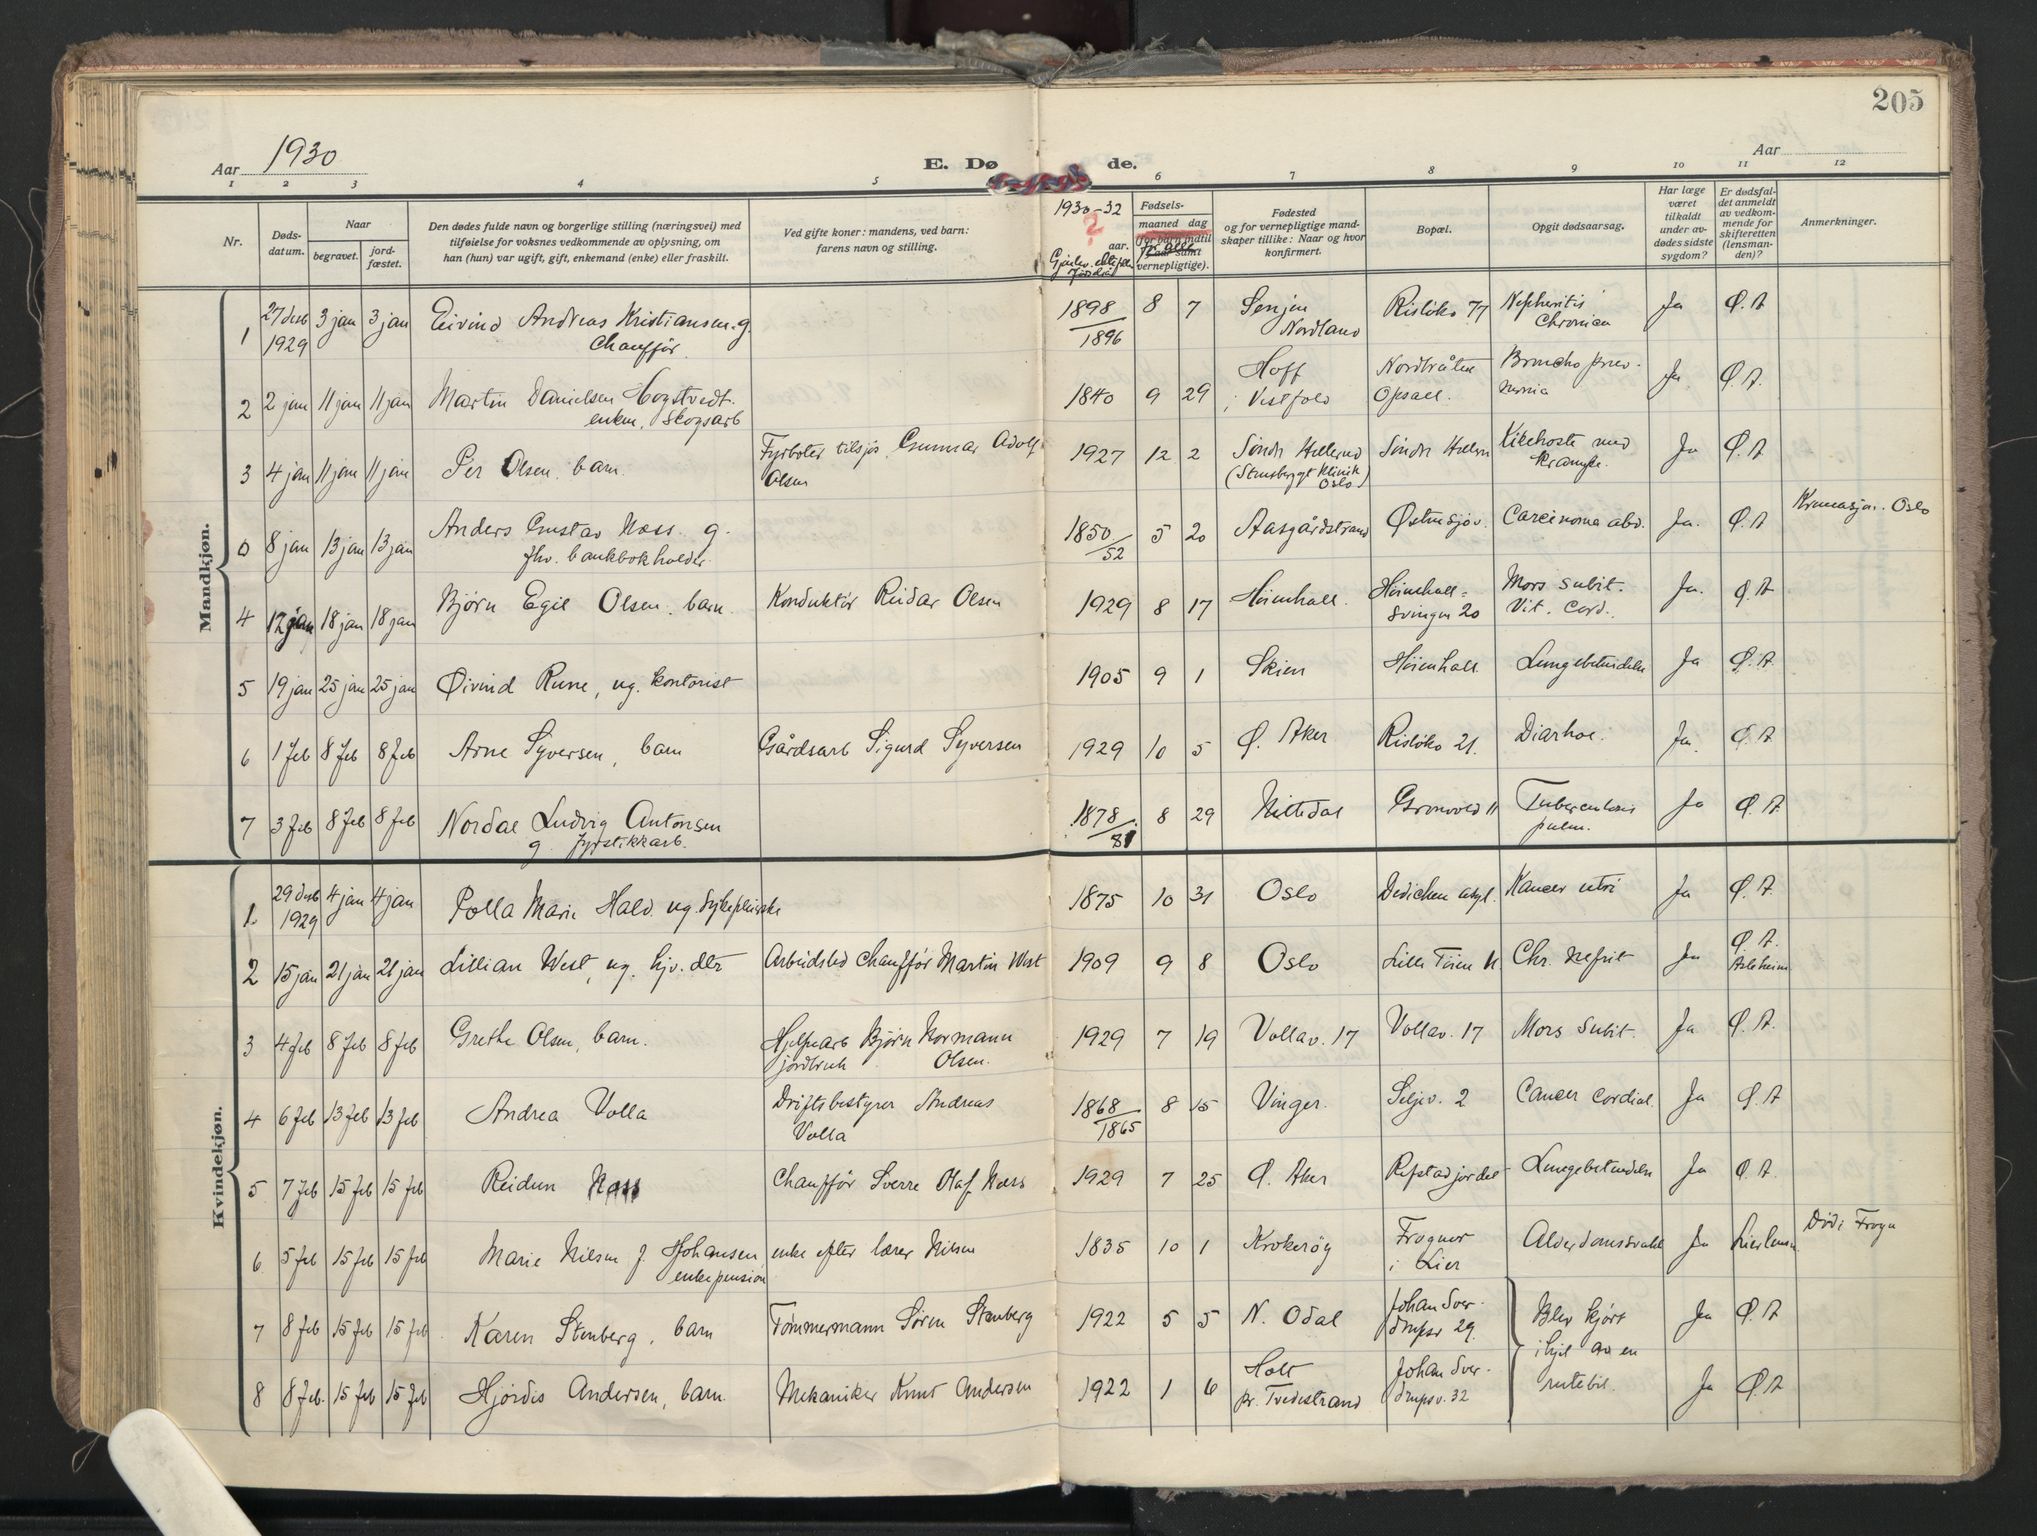 205
Aar 1930
E. Dø de.
Aar
1 2 3 4 5 6 7 8 9 10 11 12
Nr.
Døds-
datum.
Naar
begravet.
jord-
fæstet.
Den dødes fulde navn og borgerlige stilling (næringsvei) med
tilføielse for voksnes vedkommende av oplysning, om
han (hun) var ugift, gift, enkemand (enke) eller fraskilt.
Ved gifte koner: mandens, ved barn:
farens navn og stilling.
1930-32
?
aar.
Fødsels-
maaned dag
for alle
vernepligtige).
Fødested
og for vernepligtige mand-
skaper tillike: Naar og hvor
konfirmert.
Bopæl.
Opgit dødsaarsag.
Har læge
været
tilkaldt
under av-
dødes sidste
sygdom?
Er dødsfal-
det anmeldt
av vedkom-
mende for
skifteretten
(lensman-
den)?
Anmerkninger.
Mandkjøn.
1 27 desb 1929 3 jan 3 jan Eivind Andreas Kristiansen. g. Chauffør. 1898/1896 8 7 Senjen Nordland Risløko 77 Nepheritis Chronica Ja Ø. A
2 2 jan 11 jan 11 jan Martin Danielsen Hogstvedt. enkem. skogsarb 1840 9 29 Hoff i Vestfold Nordbråten Opsall. Broncho pneumonia Ja. Ø. A.
3 4 jan 11 jan 11 jan Per Olsen. barn Fyrbøter tilsjøs Gunnar Adolf Olsen 1927 12 2 Søndr Hellerud (Stensbergt klinik Oslo) Søndr Hellern Kikehoste med krampe. Ja Ø. A.
0 8 jan 13 jan 13 jan Anders Gustav Næss. g. fhv. bankbokholder. 1850/52 5 20 Aasgårdstrand Østensjøv. Carcinoma abd. Ja. Ø. A Kremasjon. Oslo
4 12 jan 18 jan 18 jan Bjørn Egil Olsen. barn. Konduktør Reidar Olsen 1929 8 17 Høienhall. Høienhall=svingen 20 Mors subit. Vit. cord. Ja. Ø. A
5 19 jan 25 jan 25 jan Øivind Rune, ug. kontorist 1905 9 1 Skien Høienhall. Lungebetændelse Ja Ø. A.
6 1 feb 8 feb 8 feb Arne Syversen, barn Gårdsarb Sigurd Syversen 1929 10 5 Ø. Aker Risløko 21. Diarhoe. Ja. Ø. A
7 3 feb 8 feb 8 feb Nordal Ludvig Antonsen g. fyrstikkarb. 1878/81 8 29 Nittedal Gronvold 11 Tuberculosis pulm. Ja Ø. A
Kvindekjøn.
1. 29 desb 1929 4 jan 4 jan Polla Marie Hald. ug. sykepleierske 1875 10 31 Oslo Dedichen asyl. Kancer utri Ja Ø. A.
2 15 jan 21 jan 21 jan Lillian West, ug. hjv. dtr Arbeidsled Chauffør Martin West 1909 9 8 Oslo Lille Tøien Chr. nefrit Ja Ø. A.
3 4 feb 8 feb 8 feb Grethe Olsen, barn. Hjelpearb Bjørn Normann Olsen. 1929 7 19 Vollav. 17 Vollav. 17 Mors subit. Ja Ø. A.
4 6 feb 13 feb 13 feb Andrea Volla Driftsbestyrer Andreas Volla 1868/1865 8 15 Vinger. Seljev. 2 Cancer cordial. Ja Ø. A
5 7 feb 15 feb 15 feb Reidun Næss Chauffør Sverre Olaf Næss 1929 7 25 Ø. Aker Refstadjordet Lungebetændelse Ja Ø. A.
6 5 feb 15 feb 15 feb Marie Nilsen f. Johansen enkepension enke efter lærer Nilsen 1835 10 1 Krokerøy Frogner i Lier Alderdomssvakh Ja Lierlensm. Død i Frogn
7 8 feb 15 feb 15 feb Karen Stenberg, barn Tømmermann Søren Stenberg 1922 5 5 N. Odal Johan Sverdrupsv 29. Blev kjørt ihjel av en rutebil. Ja Ø. A
8 8 feb. 15 feb 15 feb Hjørdis Andersen, barn. Mekaniker Knut Andersen 1922 1 6 Holt pr. Tvedestrand Johan Sverdrupsv. 32 Ja Ø. A